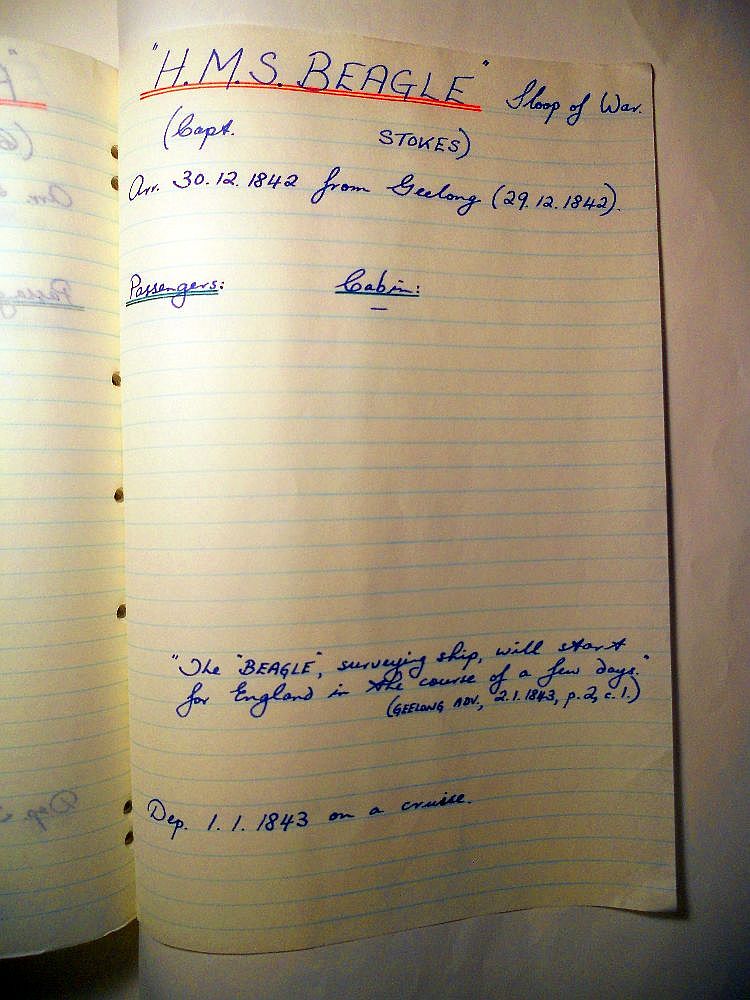 "H.M.S. BEAGLE" Sloop of War.
(Capt. STOKES)
Arr. 30.12.1842 from Geelong (29.12.1842).
Passengers: Cabin:
—
"The "BEAGLE", surveying ship, will start
for England in the course of a few days."
(GEELONG ADV., 2.1.1843, p.2, c.1.)
Dep. 1.1.1843 on a cruise.